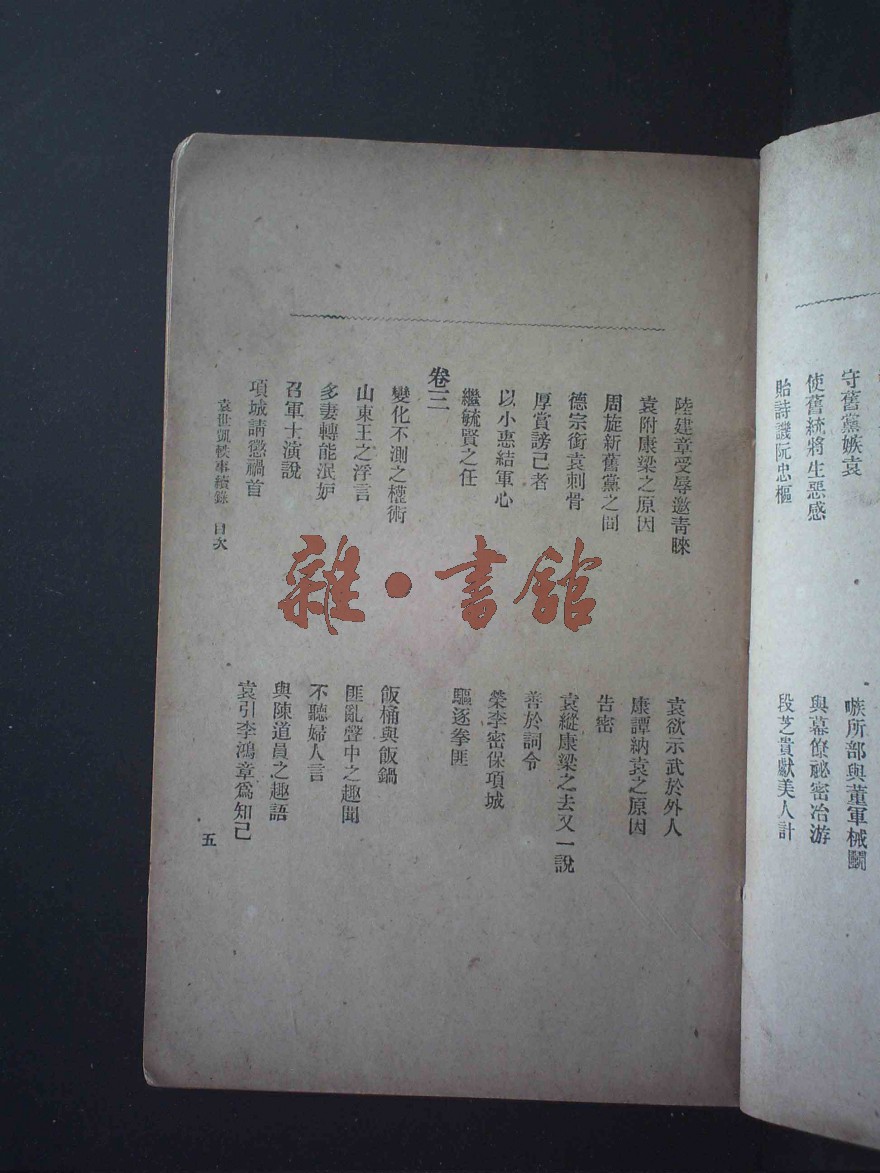 守舊黨嫉袁
嗾所部與董軍械鬭
使舊統將生惡感
與幕僚祕密冶游
貽詩譏阮忠樞
段芝貴獻美人計
陸建章受辱邀青睞
袁欲示武於外人
袁附康梁之原因
康譚納袁之原因
周旋新舊黨之間
告密
德宗銜袁刺骨
袁縱康梁之去又一說
厚賞謗己者
善於詞令
以小惠結軍心
榮李密保項城
繼毓賢之任
驅逐拳匪
卷三
變化不測之權術
飯桶與飯鍋
山東王之浮言
匪亂聲中之趣聞
多妻轉能泯妒
不聽婦人言
召軍士演說
與陳道員之趣語
項城請懲禍首
袁引李鴻章爲知己
袁世凱軼事續錄 目次
五
雜·書館